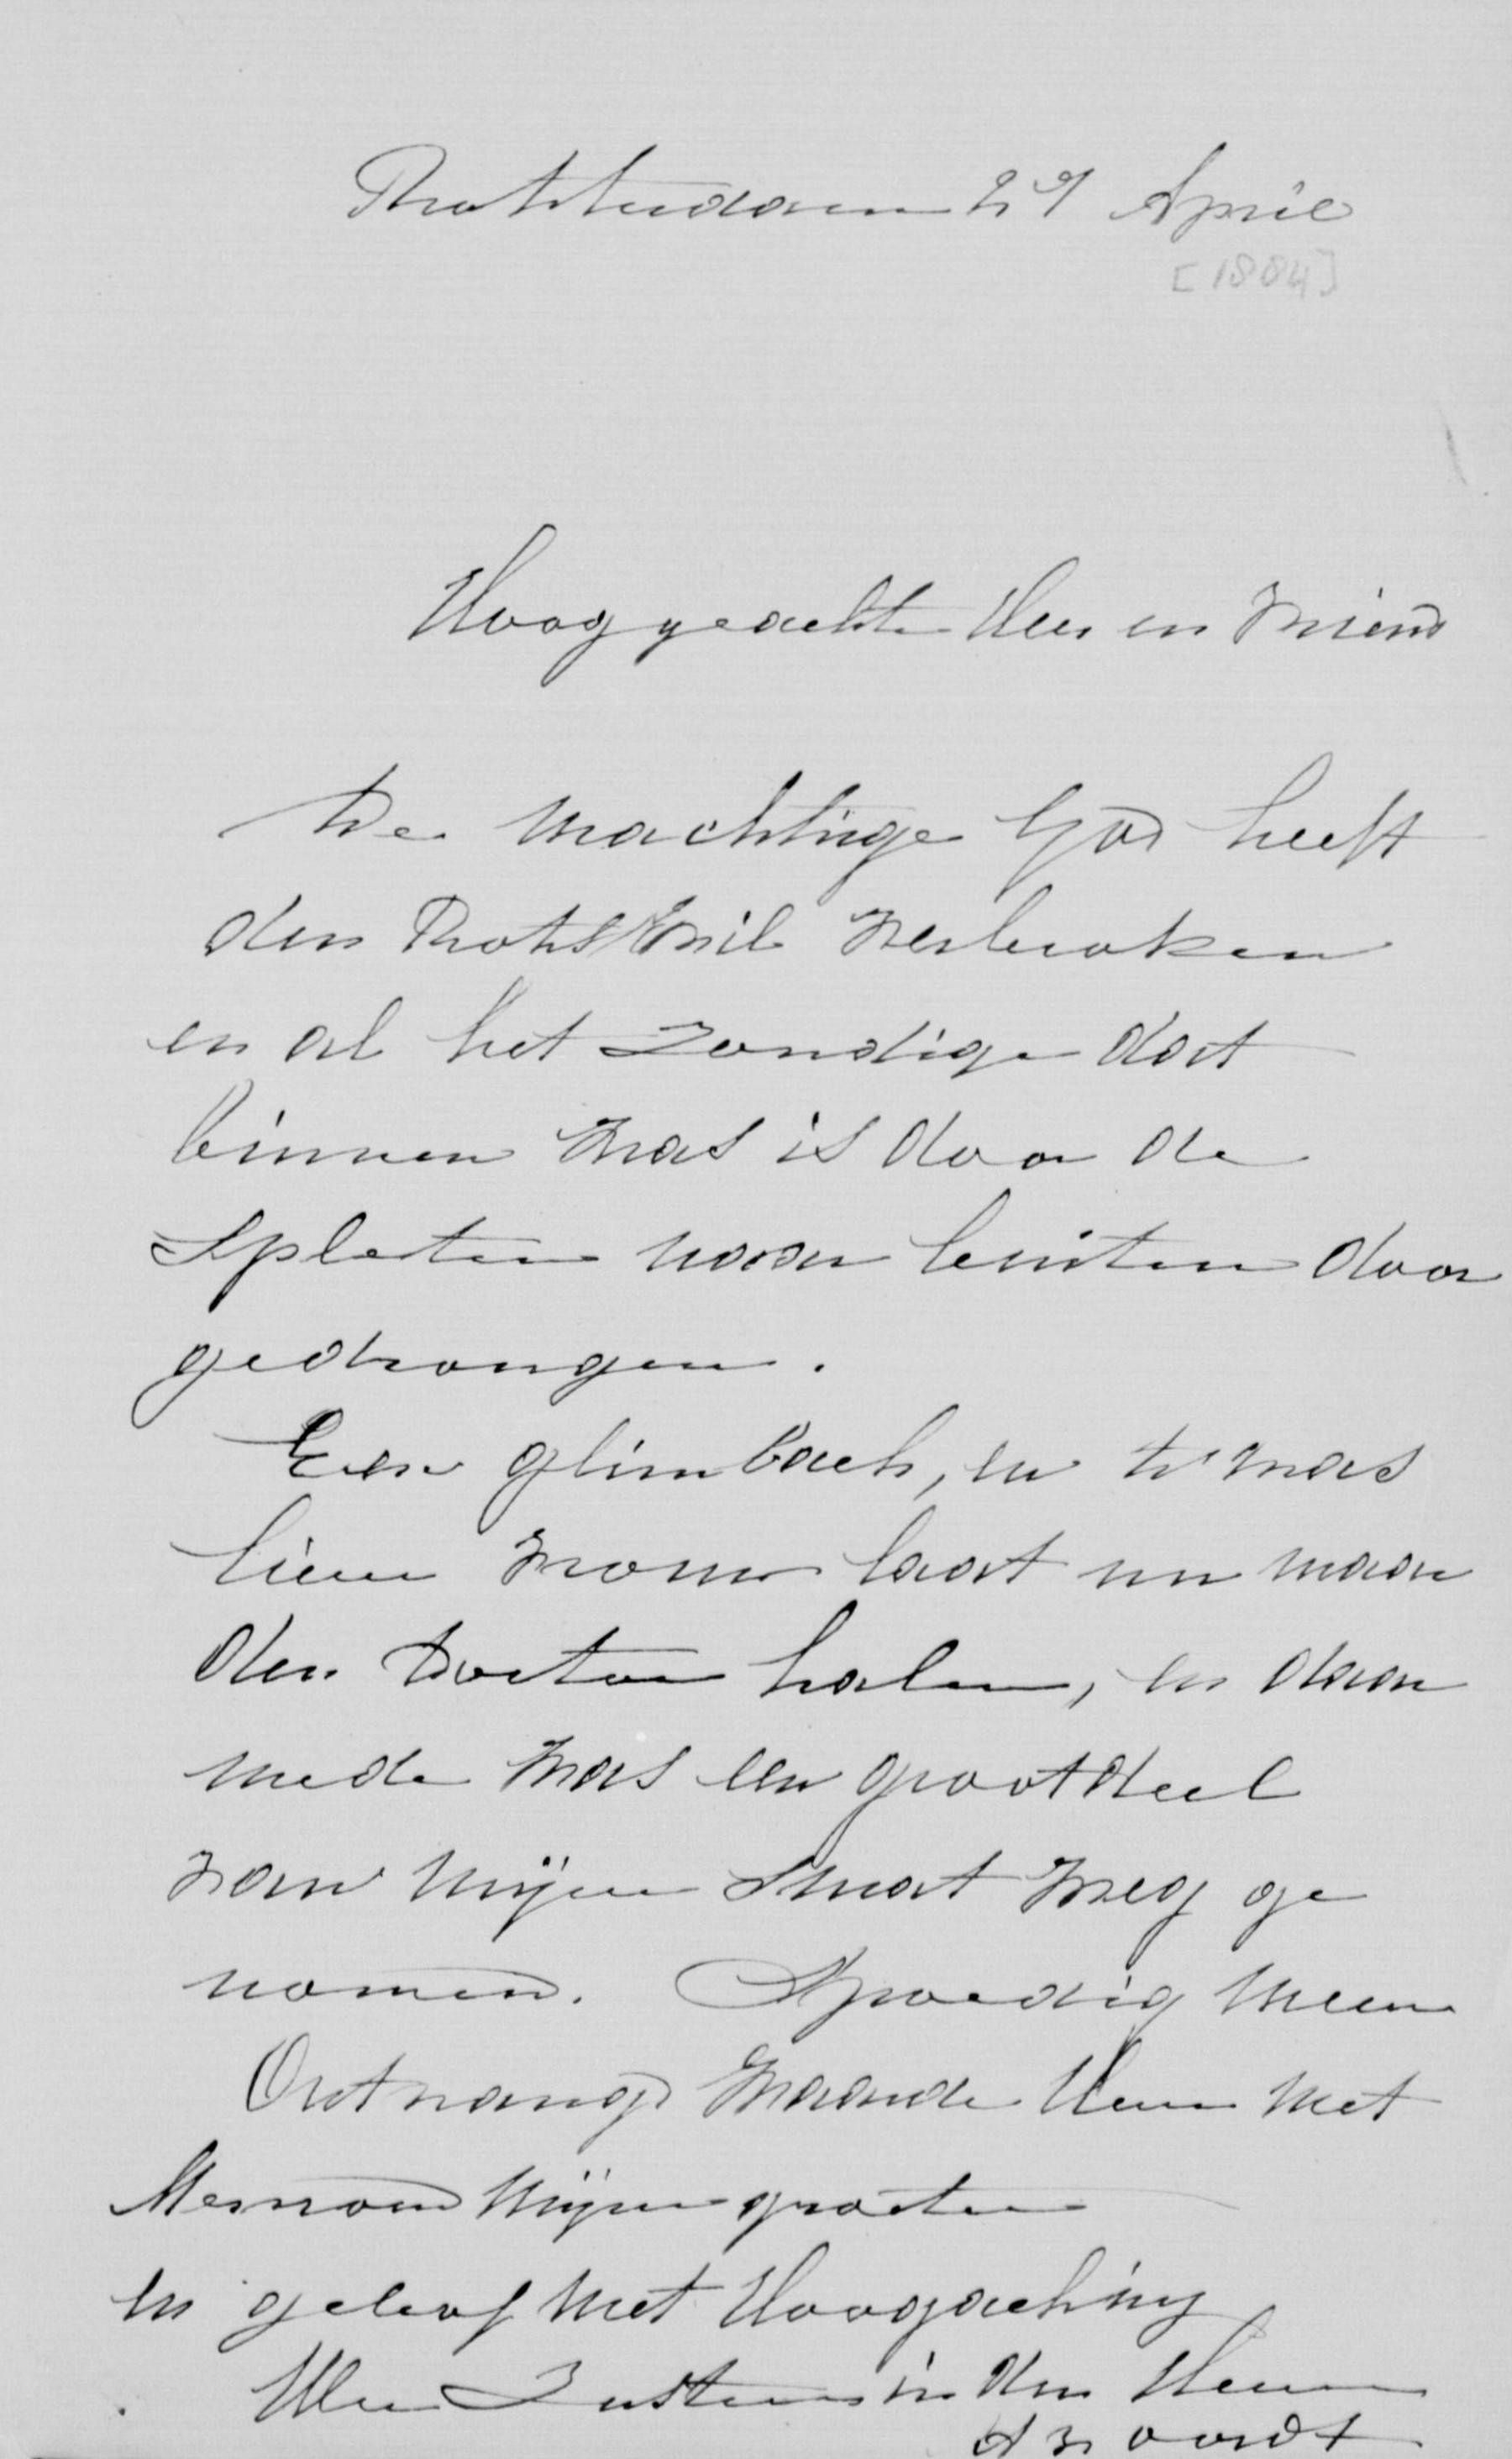 Rotterdam 27 April
[1884]
Hooggeachte Heer en Vriend
De machtige God heeft
den Rots wil verbroken
en al het Zondige dat
binnen was is door de
Spleten naar buiten door
gedrongen.
Een glimlach, en t' was
lieve vrouw laat nu maar
den Doctor halen, en daar
mede was een groot deel
van mijne smart weg ge
nomen. Spoedig meer
Ontvang Waarde Heer met
Mevrouw mijne groeten
en geloof met Hoogachting
Uwe Zuster in den Heer